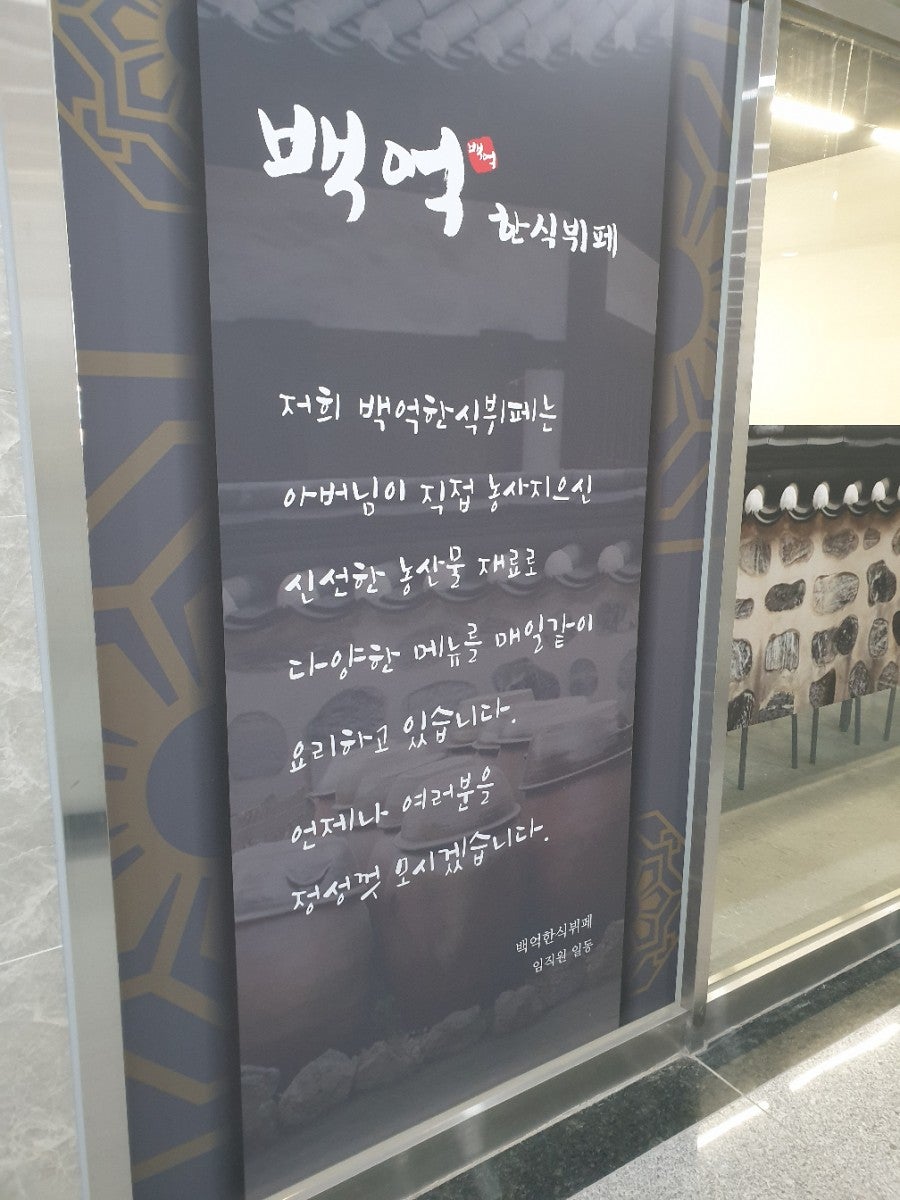 백억
백억
한식뷔페
저희 백억한식뷔페는
아버님이 직접 농사지으신
신선한 농산물 재료로
다양한 메뉴를 매일같이
요리하고 있습니다.
언제나 여러분을
정성껏 모시겠습니다.
백억한식뷔페
임직원 일동